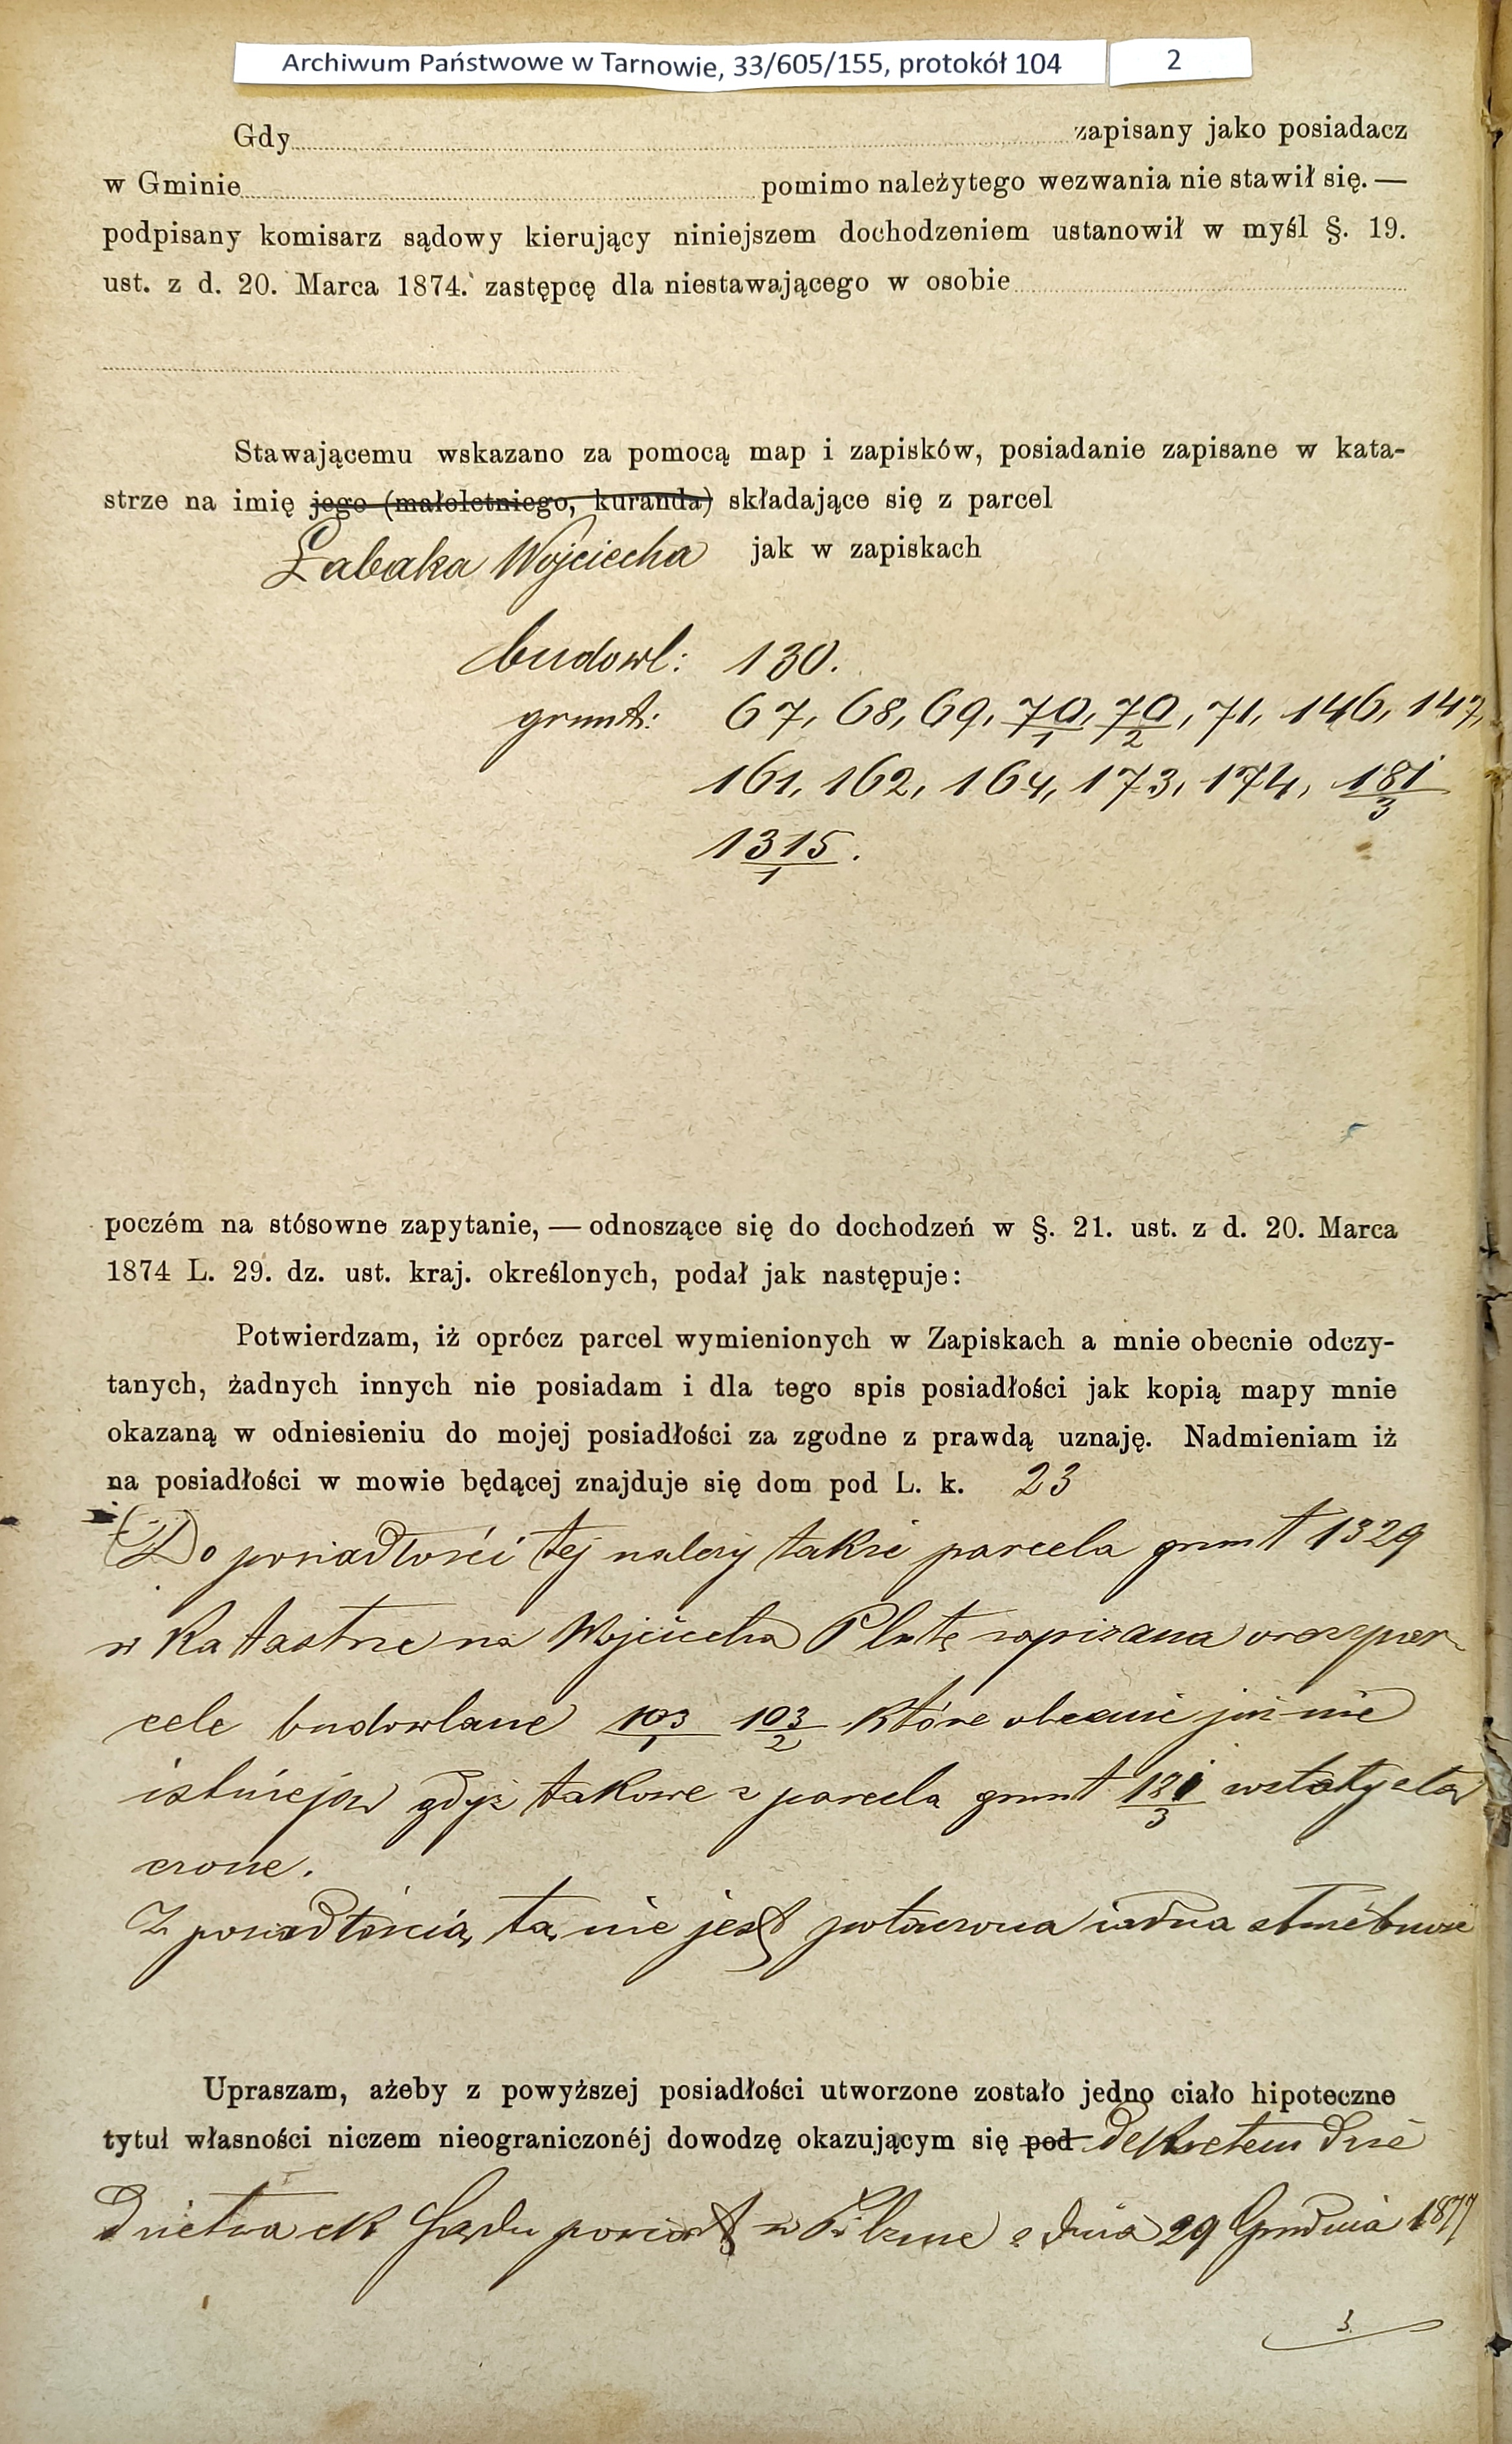 Archiwum Państwowe w Tarnowie, 33/605/155, protokół 104 2
Gdy zapisany jako posiadacz
w Gminie pomimo należytego wezwania nie stawił się. —
podpisany komisarz sądowy kierujący niniejszem dochodzeniem ustanowił w myśl §. 19.
ust. z d. 20. Marca 1874. zastępcę dla niestawającego w osobie
Stawającemu wskazano za pomocą map i zapisków, posiadanie zapisane w kata-
strze na imię jego (małoletniego, kuranda) składające się z parcel
Łabaka Wojciecha jak w zapiskach
budowl: 130.
grunt: 67, 68, 69, 70/1, 70/2, 71, 146, 147,
161, 162, 164, 173, 174, 181/3
1315/1.
poczém na stósowne zapytanie, — odnoszące się do dochodzeń w §. 21. ust. z d. 20. Marca
1874 L. 29. dz. ust. kraj. określonych, podał jak następuje:
Potwierdzam, iż oprócz parcel wymienionych w Zapiskach a mnie obecnie odczy-
tanych, żadnych innych nie posiadam i dla tego spis posiadłości jak kopią mapy mnie
okazaną w odniesieniu do mojej posiadłości za zgodne z prawdą uznaję. Nadmieniam iż
na posiadłości w mowie będącej znajduje się dom pod L. k. 23
Do posiadłości tej należy także parcela grunt 1329
w Katastrze na Wojciecha Plutę zapisana oraz par-
cele budowlane 103/1 103/2 które obecnie już nie
istnieją gdyż takowe z parcelą grunt 181/3 zostały złą
czone.
Z posiadłością tą nie jest połączona żadna służebność
Upraszam, ażeby z powyższej posiadłości utworzone zostało jedno ciało hipoteczne
tytuł własności niczem nieograniczonéj dowodzę okazującym się pod dekretem dzie
dzictwa ck Sądu powiat w Pilznie z dnia 29 Grudnia 1877
3